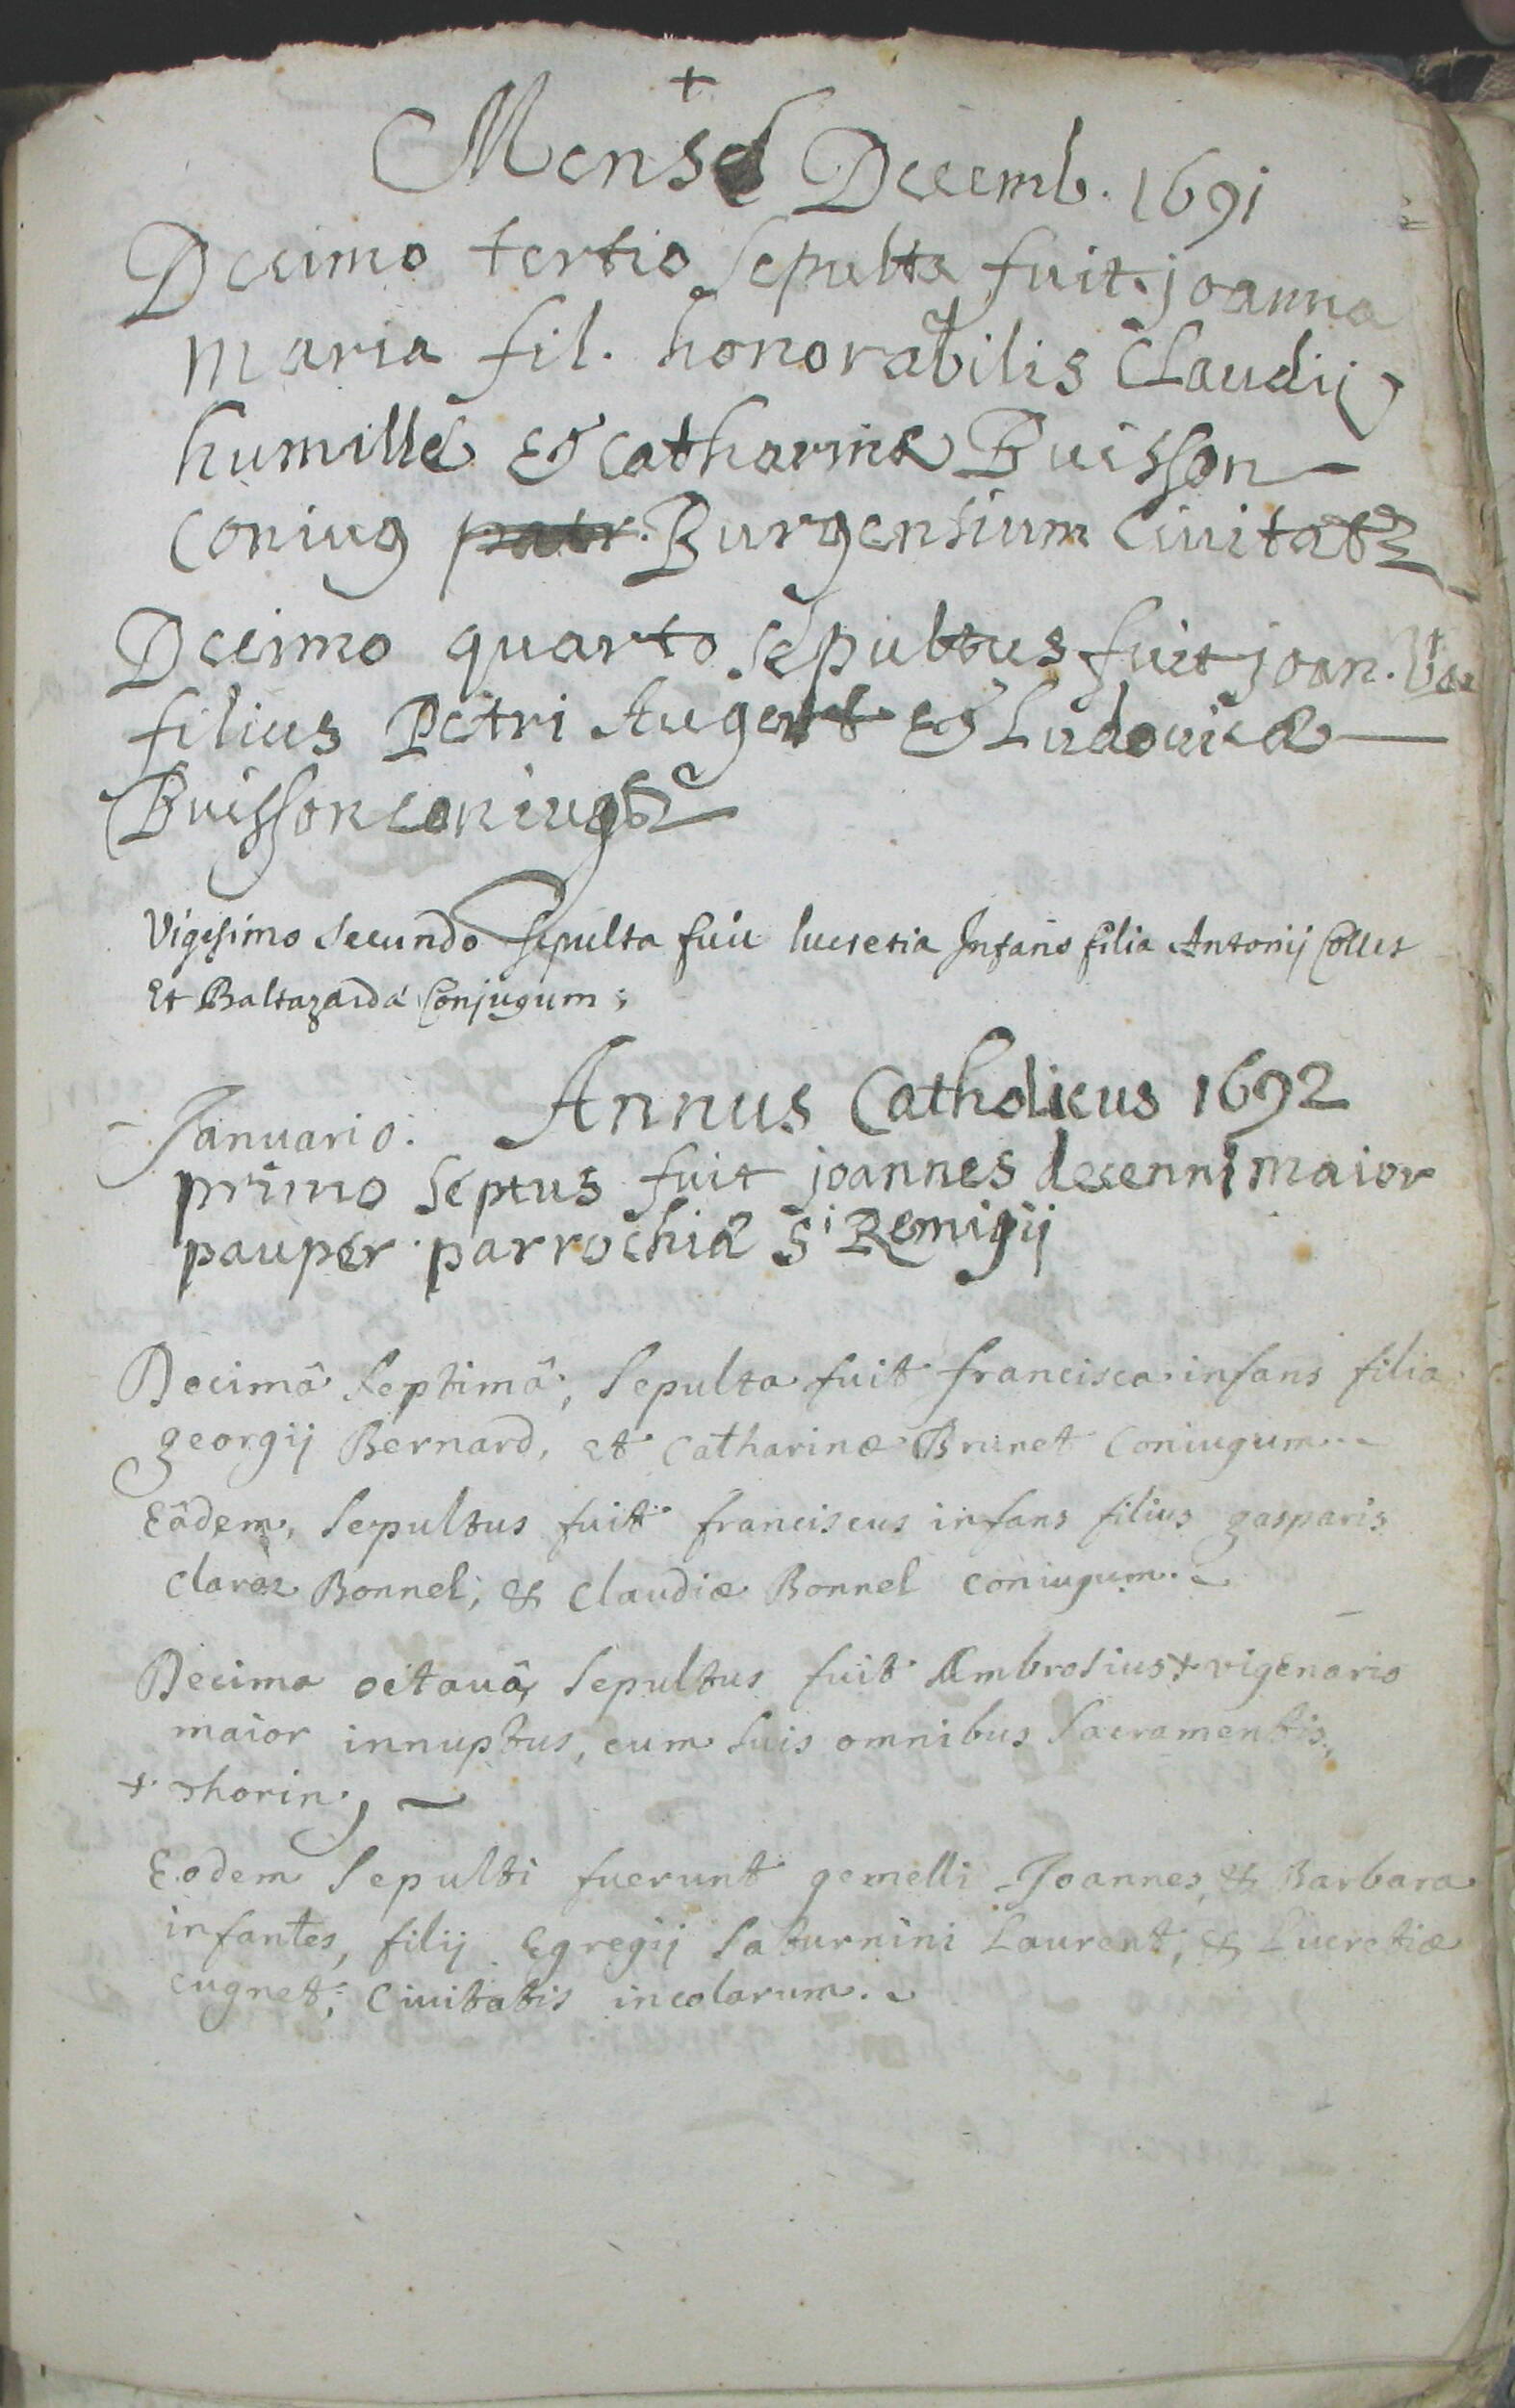 +
Mense Decemb. 1691
Decimo tertio sepulta fuit joanna
maria fil. honorabilis Claudij
humille et catharinæ Buisson
coniug Burgensium Civitatis
Decimo quarto sepultus fuit joan. bta
filius Petri Augert et Ludovicæ
Buisson coniug
Vigesimo secundo sepulta fuit lucretia Infans filia Antonij Collet
Et Baltazarda Conjugum;
Annus Catholicus 1692
Januario.
primo septus fuit joannes decenni maior
pauper parrochiæ Si Remigij
Decimâ septimâ, sepulta fuit francisca infans filia
georgij Bernard, et catharinæ Brunet coniugum.
Eâdem, sepultus fuit franciscus infans filius gasparis
claraz Bonnel, & claudiæ Bonnel coniugum.
Decima octauâ, sepultus fuit Ambrosius + vigenario
maior innuptus, cum suis omnibus sacramentis.
+ thorin,
Eodem sepulti fuerunt gemelli Joannes, & Barbara
infantes, filij Egregij saturnini Laurent, & Lucretiæ
cugnet, Ciuitatis incolarum.